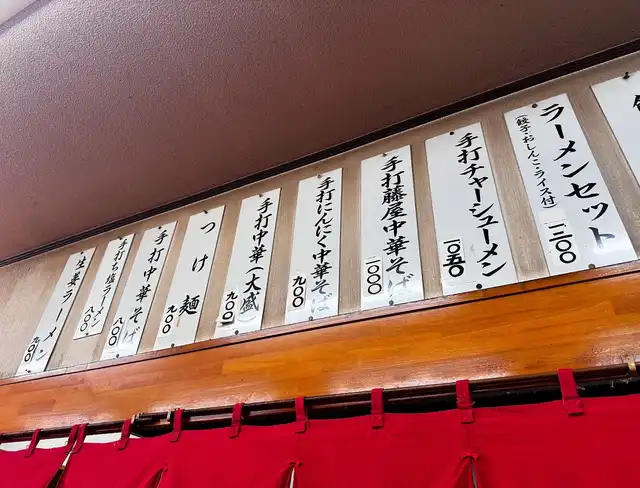 ラーメンセット
(餃子・おしんこ・ライス付)
一二〇〇
手打チャーシューメン
一〇五〇
手打藤屋中華そば
一〇〇〇
手打にんにく中華そば
九〇〇
手打中華(大盛)
九〇〇
つけ麺
九〇〇
手打中華そば
八〇〇
手打ち塩ラーメン
八〇〇
生姜ラーメン
九〇〇